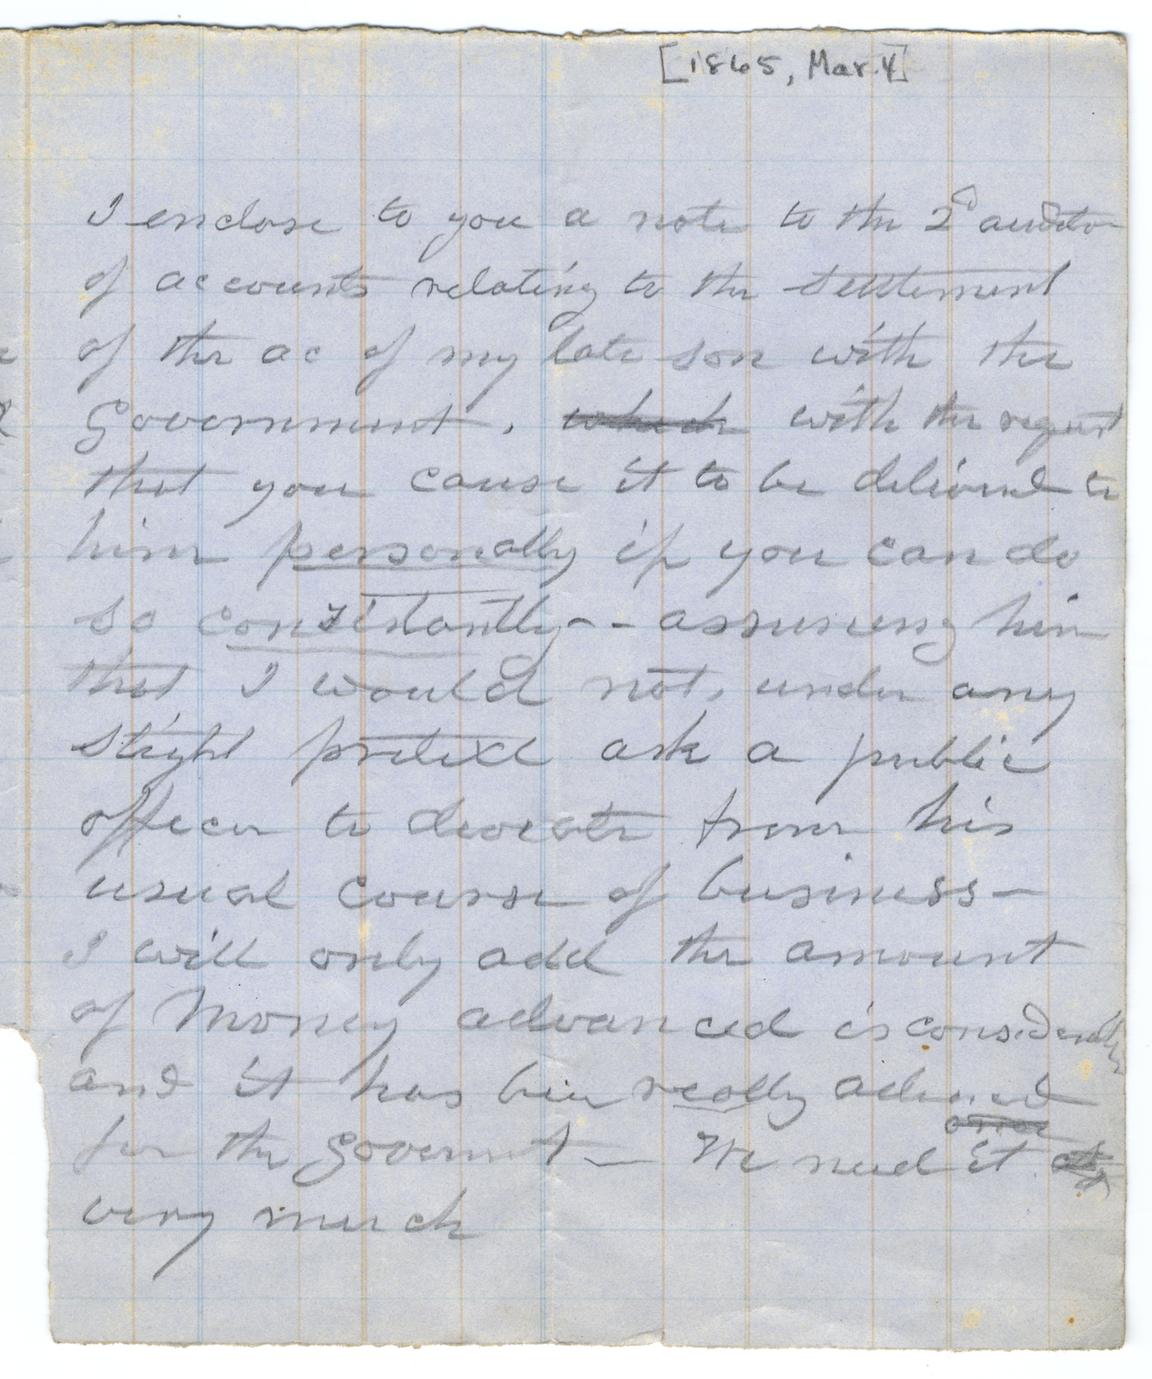 [1865, Mar. 4]
I enclose to you a note to the 2d auditor
of accounts relating to the settlement
of the ac of my late son with the
Government. which with the request
that you cause it to be delivered to
him personally if you can do
so consistantly -- assuring him
that I would not, under any
slight pretext ask a public
officer to deviate from his
usual course of business -
I will only add the amount
of money advanced is considerable
and it has been really advanced
for the Government - We need it
very much